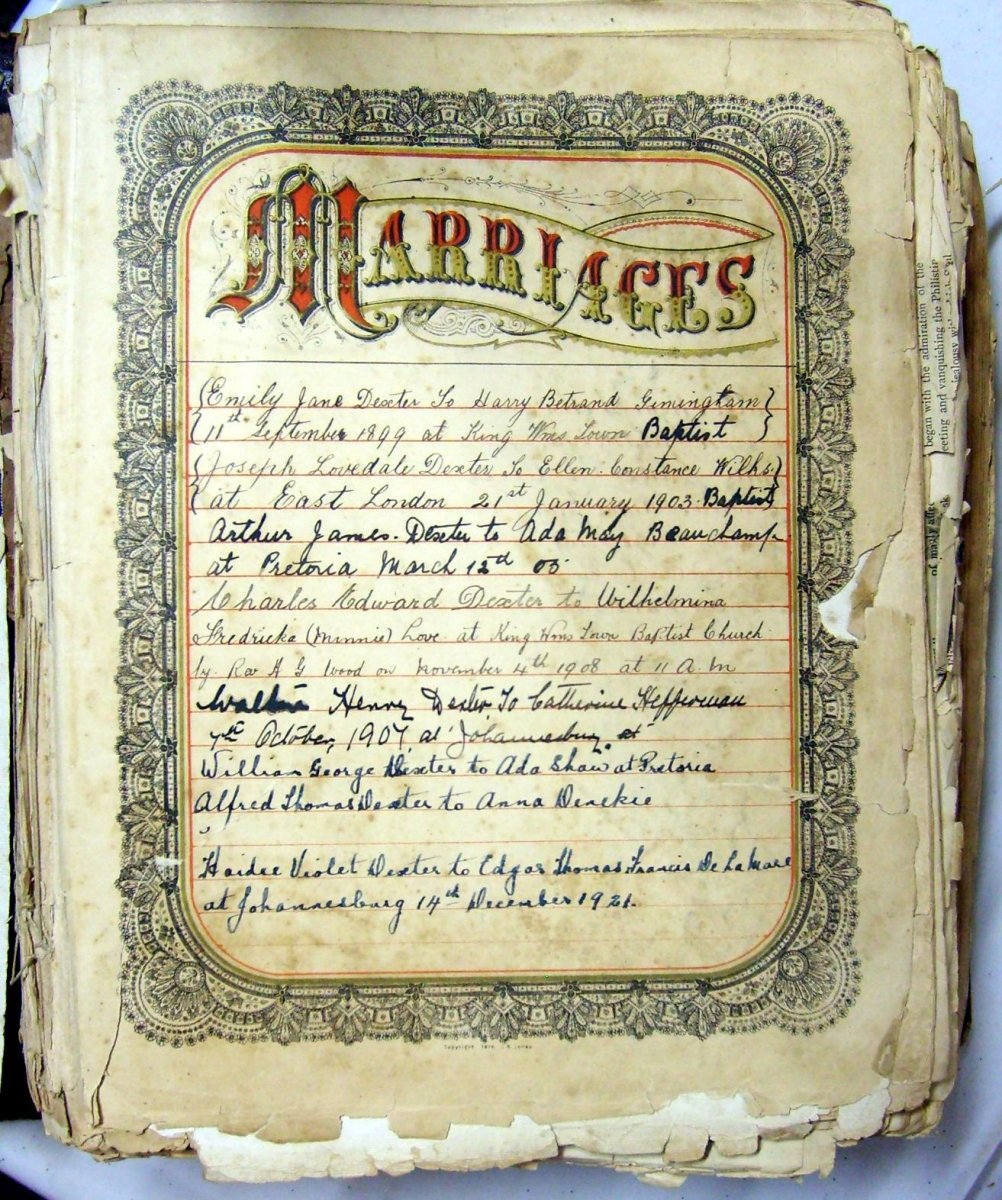 MARRIAGES
(Emily Jane Dexter To Harry Betrand Gimingham)
(11th September 1899 at King Wms Town Baptist)
(Joseph Lovedale Dexter To Ellen. Constance Wilks.)
(at East London 21st January 1903. Baptist)
Arthur James. Dexter to Ada May Beauchamp
at Pretoria March 12nd 05
Charles Edward Dexter to Wilhelmina
Fredricka (Minnie) Love. at King Wms Town Baptist Church
by. Rev A G Wood on November 4th 1908 at 11 A.M
Henry Dexter To Catherine Hefferman
October, 1907 at Johannesburg at
William George Dexter to Ada Shaw at Pretoria
Alfred Thomas Dexter to Anna Denekie
Violet Dexter to Edgar Thomas Francis De La Mare
at Johannesburg 14th December 1921.
began with the admiration of the
eeting and vanquishing the Philistin
jealousy
of